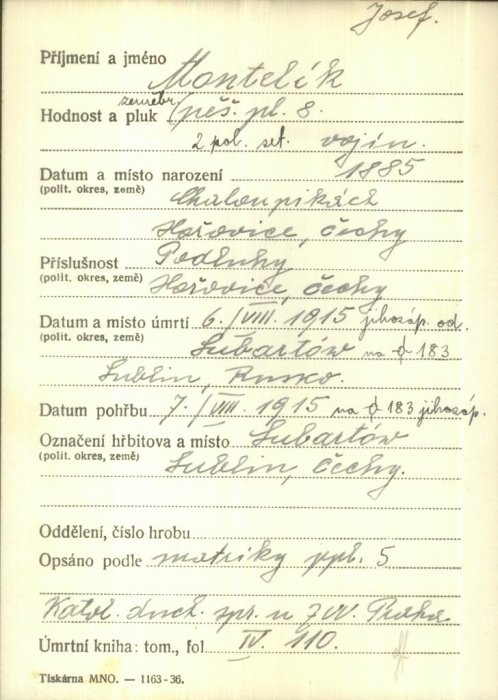 Josef.
Příjmení a jméno Montelík
zeměbr.
Hodnost a pluk pěš. pl. 8.
2 pol. set. vojín.
Datum a místo narození 1885
(polit. okres, země) Chaloupikách
Hořovice, čechy
Příslušnost Podluhy
(polit. okres, země) Hořovice, čechy
Datum a místo úmrtí 6./VIII. 1915 jihozáp. od.
(polit. okres, země) Lubartów na 183
Lublin, Rusko.
Datum pohřbu 7./VIII. 1915 na 183 jihozáp.
Označení hřbitova a místo Lubartów
(polit. okres, země) Lublin, čechy.
Oddělení, číslo hrobu
Opsáno podle matriky ppl. 5
Katol. duch. spr. u ZVV. Praha
Úmrtní kniha: tom., fol. IV. 110.
Tiskárna MNO. — 1163-36.